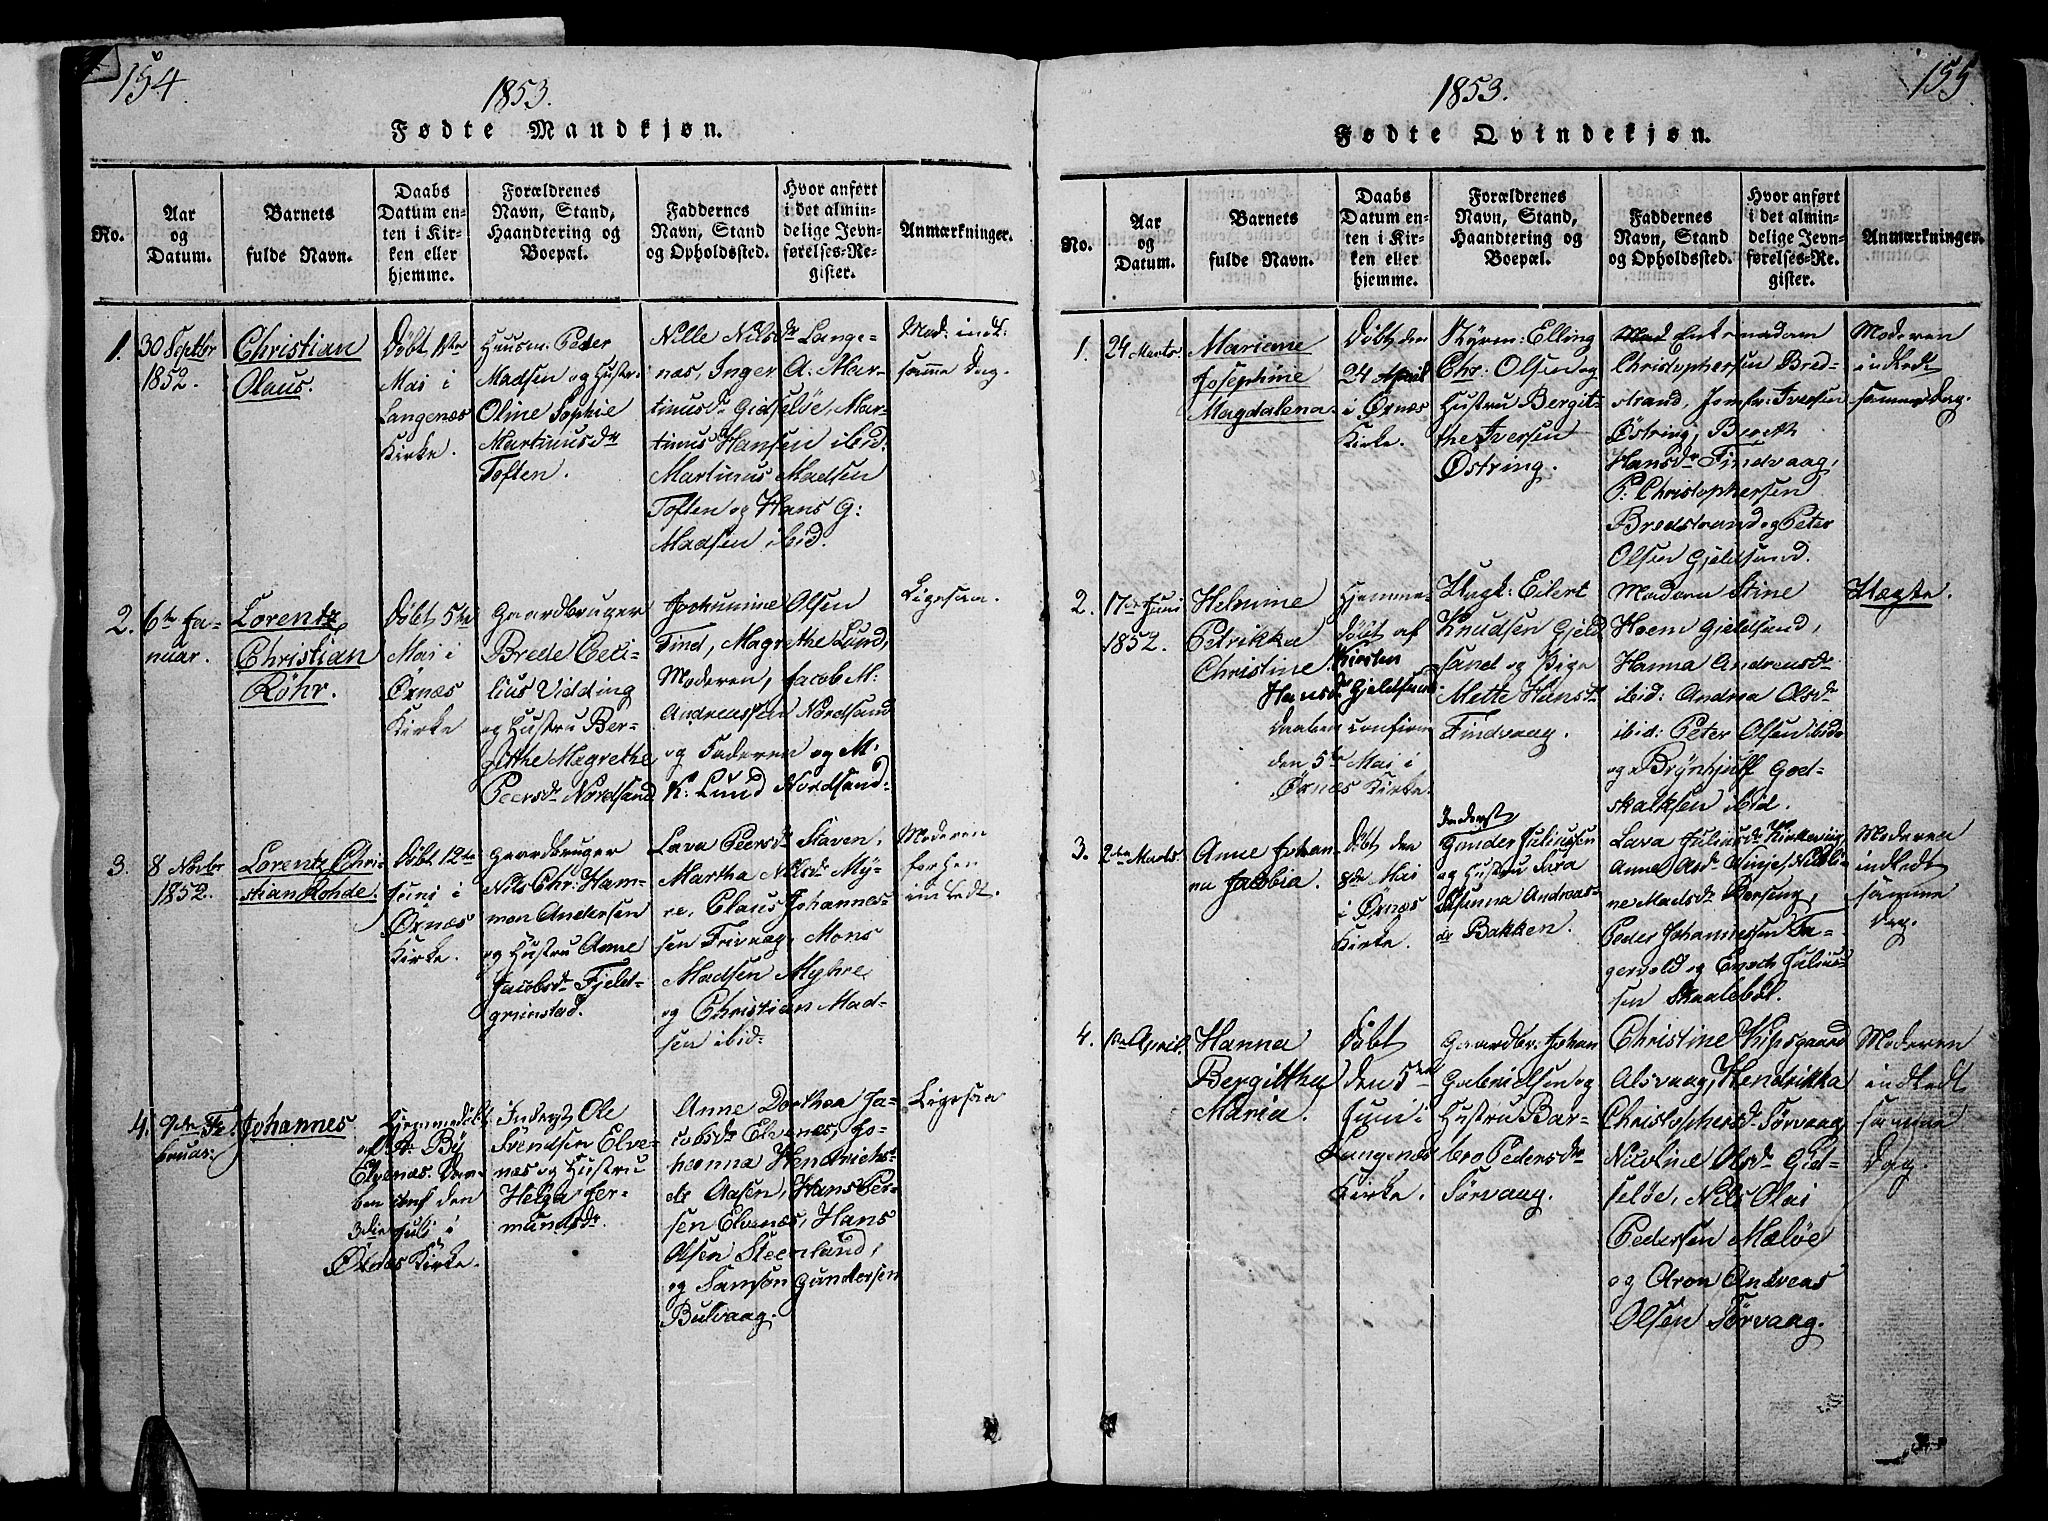 154
1853.
Fødte Mandkjøn.
No.
Aar
og
Datum.
Barnets
fulde Navn.
Daabs
Datum en-
ten i Kir-
ken eller
hjemme.
Forældrenes
Navn, Stand,
Haandtering og
Boepæl.
Faddernes
Navn, Stand
og Opholdssted.
Hvor anført
i det almin-
delige Jevn-
førelses-Re-
gister.
Anmærkninger.
1.
30 Septbr
1852.
Christian
Olaus.
Døbt 1ste
Mai i
Langenæs
Kirke.
Huusm: Peder
Madsen og Hustr:
Oline Sophie
Martinusdr
Toften.
Nille Nilsdr Lange-
nas, Inger A. Mar-
tinusdr Gidsløe, Mar-
tinus Hansen ibid.
Martinus Madsen
Toften og Hans G:
Madsen ibid.
Mod: indl:
samme Dag.
2.
6te Ja-
nuar.
Lorentz
Christian
Röhr.
Døbt 5te
Mai i
Örnæs
Kirke
Gaardbruger
Brede Ceci-
lius Vidding
og Hustru Ber-
githe Magrethe
Peersdr Nordsand
Johannine Olsen
Tind, Magrethe Lund,
Moderen, Jacob M.
Andreassen Nordsand
og Faderen og M.
K. Lund Nordsand.
Ligesaa.
3.
8 Novbr
1852.
Lorentz Chri-
stian Rohde.
Døbt 12te
Juni i
Örnæs
Kirke.
Gaardbruger
Nils Chr. Ham-
mon Andersen
og Hustru Anne
Jacobsdr Fjeld-
grimstad.
Lava Peersdr Staven,
Martha Nilsdr My-
re, Claus Johannes-
sen Frivaag, Mons
Madsen Myhre,
og Christian Mad-
sen ibid.
Moderen
forhen
indledt.
4.
9de Fe-
bruar.
Johannes
Hjemmedøbt
af A. By
Elvenæs. Daa-
ben conf den
3die Juli i
Örnæs Kirke.
Inderst Ole
Svendsen Elve-
næs og Hustru
Helga Jer-
mundsdr
Anne Dorthea Ja-
cobsdr Elvenæs, Jo-
hanna Hendrichs-
dr Aasen, Hans Per-
sen Elvenæs, Hans
Olsen Steenland,
og Samson Gundersen
Bulvaag.
Ligesaa
155
1853.
Fødte Qvindekjøn.
No.
Aar
og
Datum.
Barnets
fulde Navn.
Daabs
Datum en-
ten i Kir-
ken eller
hjemme.
Forældrenes
Navn, Stand,
Haandtering og
Boepæl.
Faddernes
Navn, Stand
og Opholdssted.
Hvor anført
i det almin-
delige Jevn-
førelses-Re-
gister.
Anmærkninger.
1.
24 Marts.
Mariane
Josephine
Magdalena.
Døbt den
24 April
i Örnæs
Kirke.
Styrm: Elling
Chr. Olsen og
Hustru Bergit-
the Iversen
Östring.
Enkemadam
Christophersen Bred-
strand, Jomfr: Iversen
Östring, Bereth
Hansdr Tindvaag,
P: Christophersen
Bredstrand og Peter
Olsen Gjeldsand.
Moderen
indledt
samme Dag.
2.
17de Juni
1852.
Helmine
Petrikka
Christine
Hjemme-
døbt af
Kirsten
Hansdr Gjeldsand.
Daaben confirm
den 5te Mai i
Örnæs Kirke.
Ungk: Eilert
Knudsen Gjeld
sand og Pige
Mette Hansdr
Tindvaag.
Madam Stine
Hoem Gjeldsand,
Hanna Andreasdr
ibid: Andrea Olsdr
ibid: Peter Olsen ibid
og Brynhjulf God-
skalksen ibid.
Uægte.
3.
2den Marts
Anne Johan-
na Jacobia.
Døbt den
8de Mai
i Örnæs
Kirke.
Inderst
Gunder Juliussen
og Hustru Sira
Susanna Andreas-
dr Bakken.
Lava Juliusdr Kirkevaag
Anne Asdr Vinje, Nicoli-
ne Madsdr Korseng,
Peder Johannessen Fa-
gervold og Enoch Julius-
sen Skaaleböl.
Moderen
indledt
samme
Dag.
4.
1ste April.
Hanna
Bergittha
Maria.
Døbt
den 5te
Juni i
Langenæs
Kirke.
Gaardbr. Johan
Gabrielsen og
Hustru Bar-
bro Pedersdr
Sørvaag.
Christine Kipsgaard
Alsvaag, Hendrikka
Christophersdr Sørvaag
Nicoline Olsdr Gid-
seløe, Nils Olai
Pedersen Maløe
og Aron Andreas
Olsen Sørvaag.
Moderen
indledt
samme
Dag.